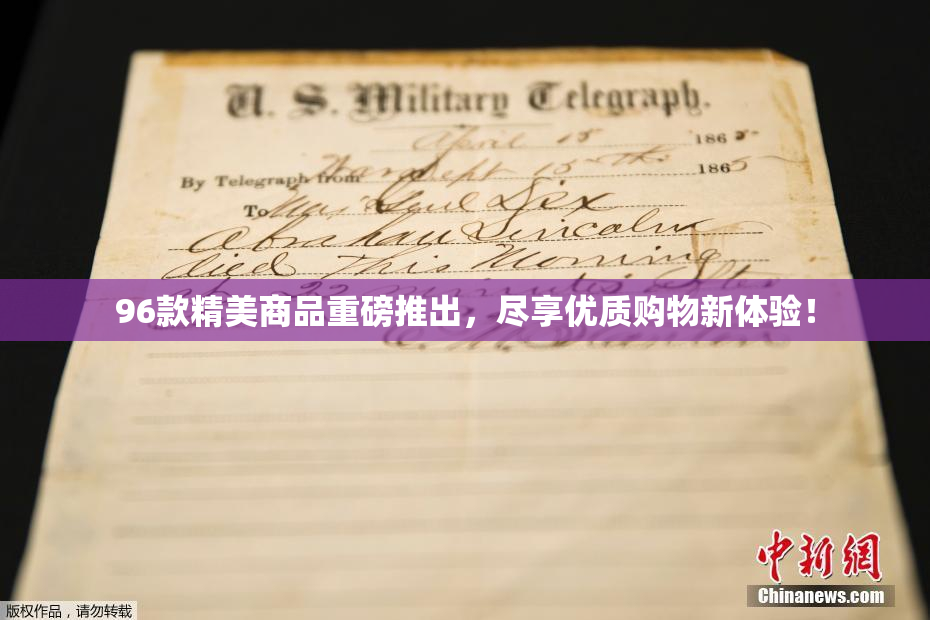 U. S. Military Telegraph.
April 15 1865
By Telegraph from War Dept 15th 1865
To Maj Genl Dix
Abraham Lincoln
died This Morning
at 22 minutes after
96款精美商品重磅推出，尽享优质购物新体验！
中新网
Chinanews.com
版权作品，请勿转载